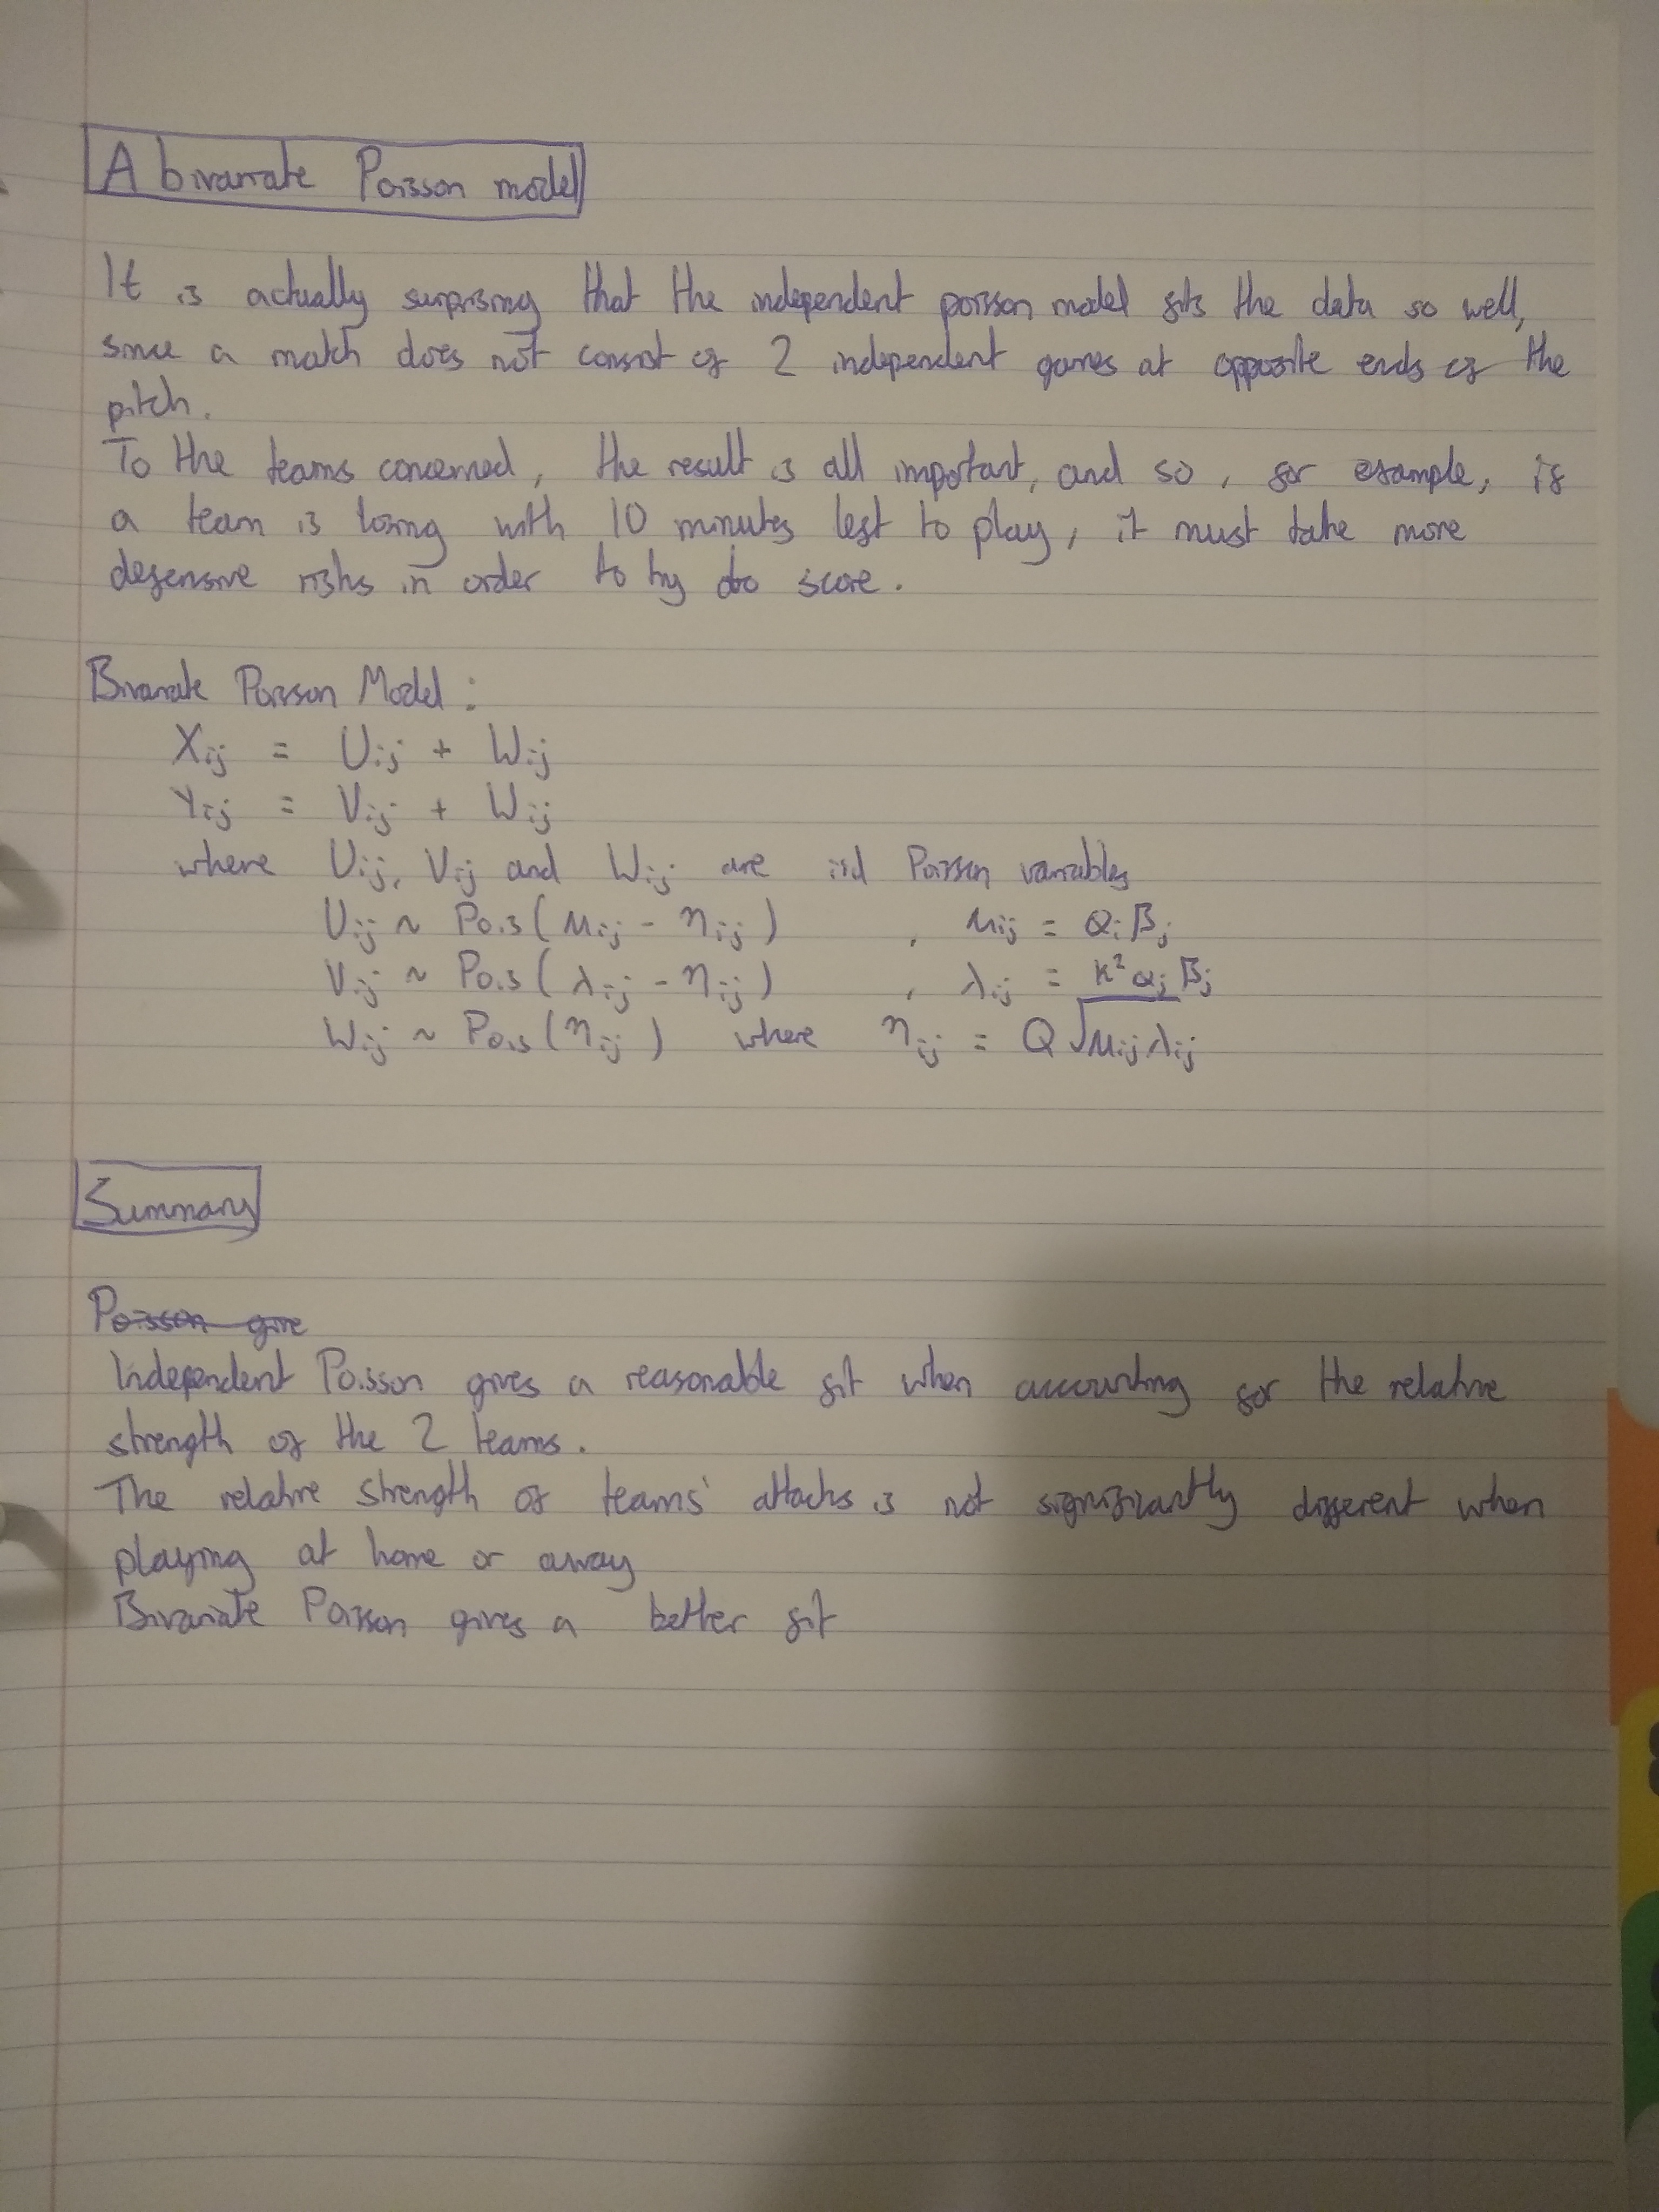 A bivariate Poisson model
It is actually surprising that the independent poisson model fits the data so well,
since a match does not consist of 2 independent games at opposite ends of the
pitch.
To the teams concerned, the result is all important, and so, for example, if
a team is losing with 10 minutes left to play, it must take more
defensive risks in order to try to score.
Bivariate Poisson Model:
Xij = Uij + Wij
Yij = Vij + Wij
where Uij, Vij and Wij are iid Poisson variables
Uij ~ Pois(μij - ηij) , μij = αiβj
Vij ~ Pois(λij - ηij) , λij = k²αjβj
Wij ~ Pois(ηij) where ηij = Q√μijλij
Summary
Poisson give
Independent Poisson gives a reasonable fit when accounting for the relative
strength of the 2 teams.
The relative strength of teams' attacks is not significantly different when
playing at home or away
Bivariate Poisson gives a better fit